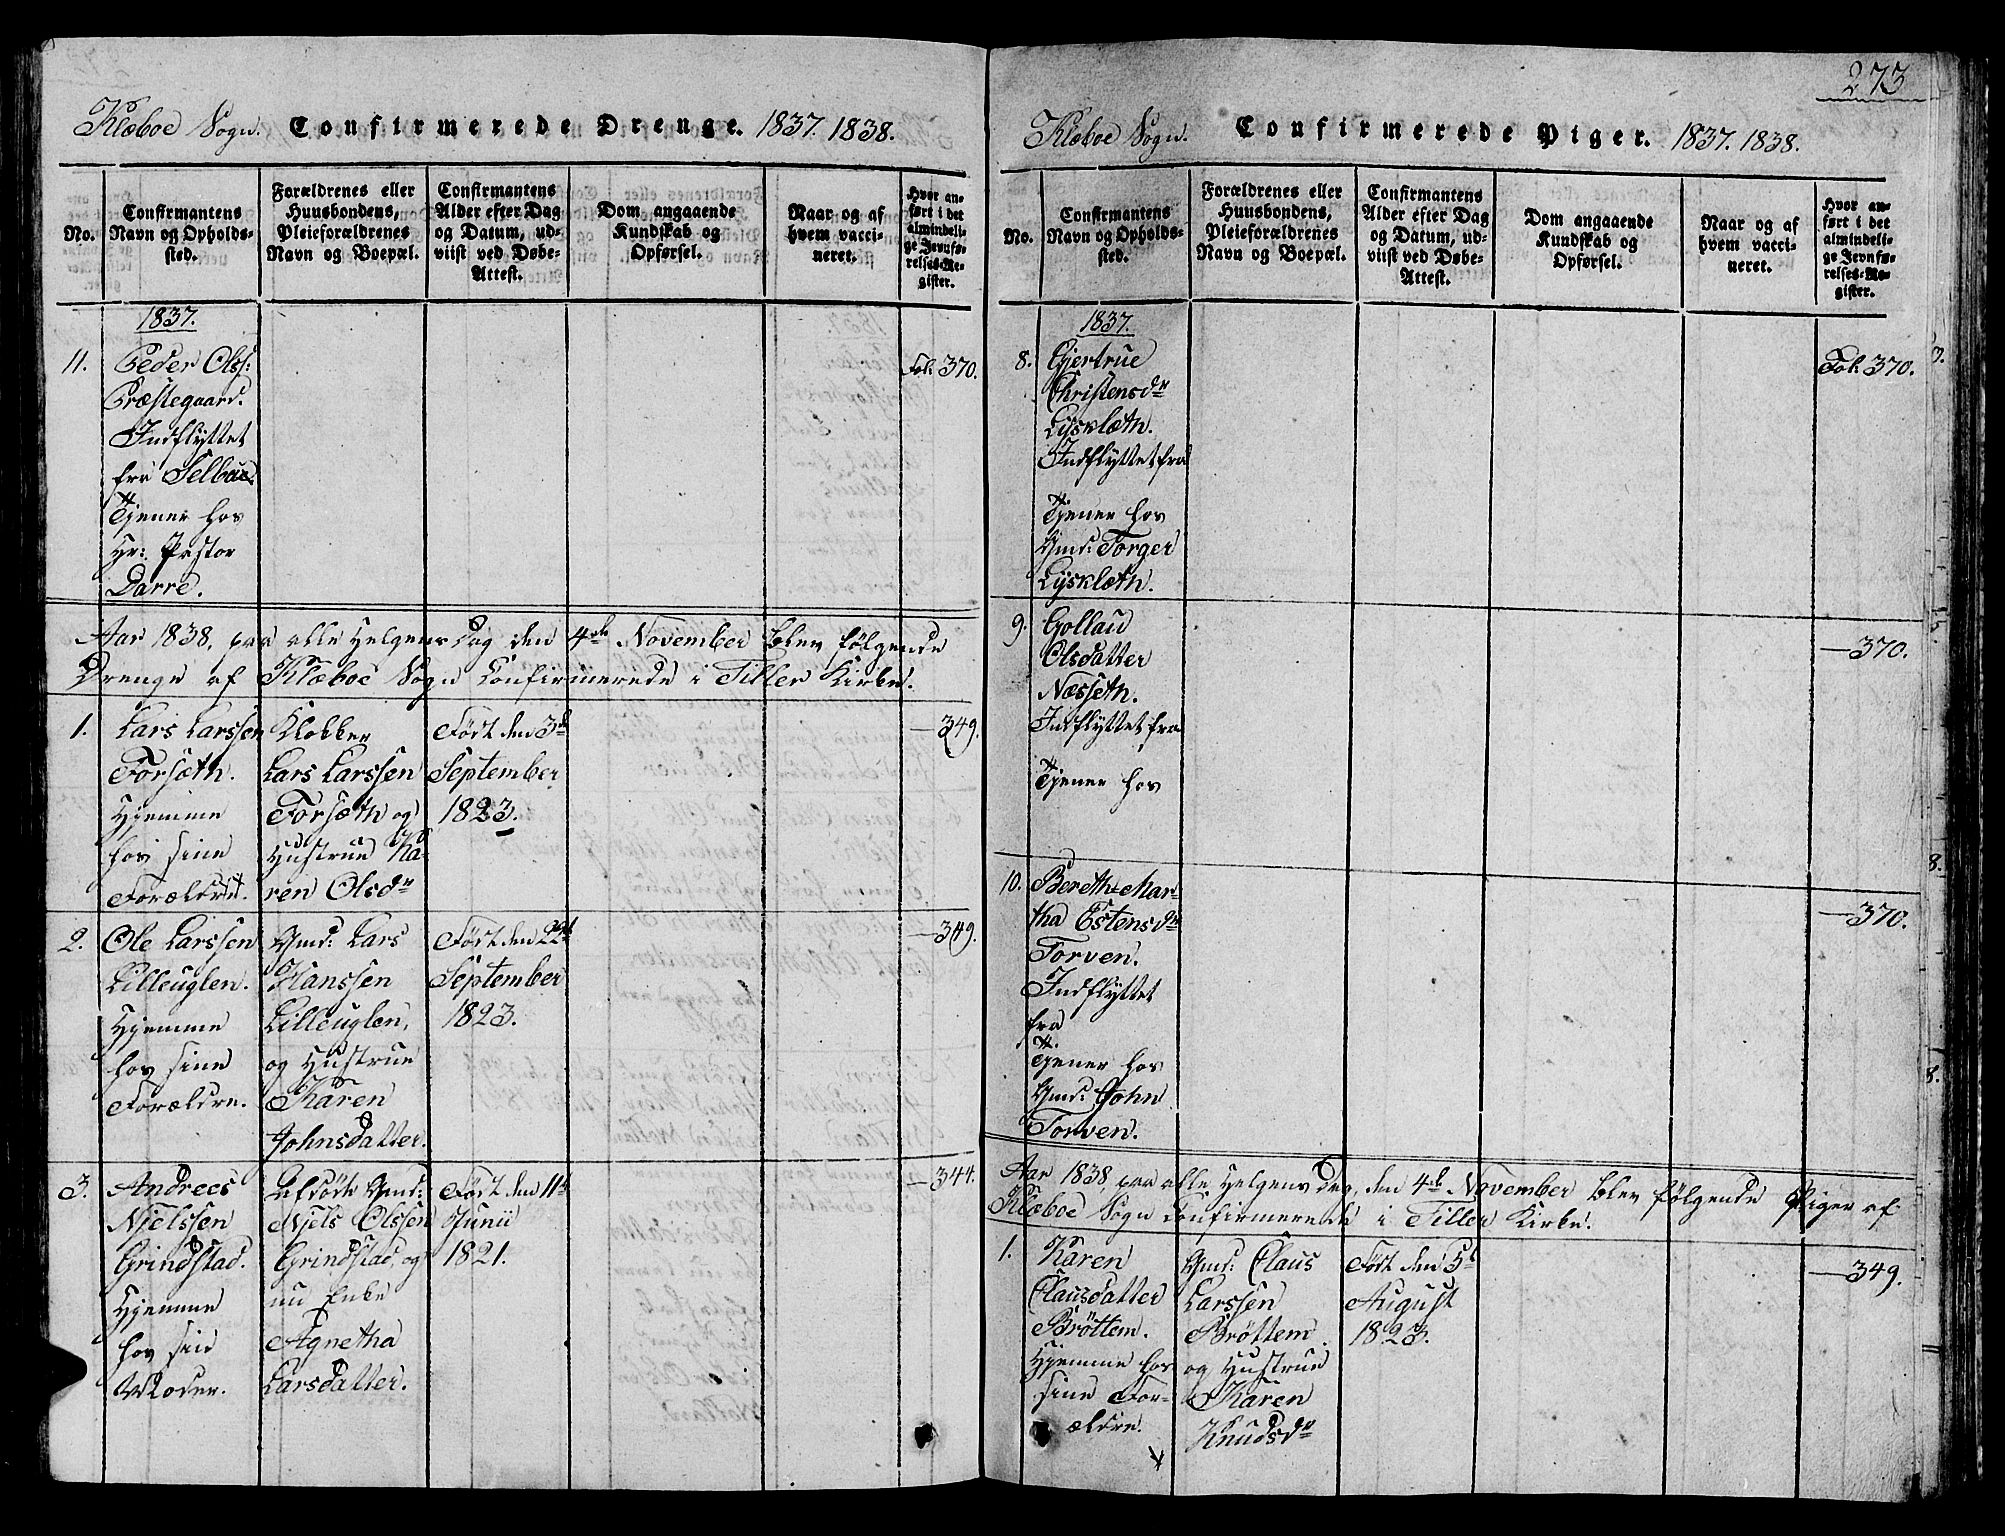 Klæboe Sogn. Confirmerede Drenge. 1837. 1838.
No.
Confirmantens
Navn og Opholds-
sted.
Forældrenes eller
Huusbondens,
Pleieforældrenes
Navn og Boepæl.
Confirmantens
Alder efter Dag
og Datum, ud-
viist ved Døbe-
Attest.
Dom angaaende
Kundskab og
Opførsel.
Naar og af
hvem vacci-
neret.
Hvor an-
ført i det
almindeli-
ge Jevnfø-
relses-Re-
gister.
1837.
11.
Peder Olss:
Præstegaard.
Indflyttet
fra Selboe.
Tjener hos
Hr: Pastor
Darre.
Fol: 370.
Aar 1838, paa alle Helgens Dag den 4de November blev følgende
Drenge af Klæboe Sogn Confirmerede i Tiller Kirke.
1.
Lars Larssen
Forsæth.
Hjemme
hos sine
Forældre.
Klokker
Lars Larssen
Forsæth og
Hustrue Ka-
ren Olsdr
Født den 3de
September
1823.
— 349.
2.
Ole Larssen
Lilleuglen.
Hjemme
hos sine
Forældre.
Gmd: Lars
Hanssen
Lilleuglen,
og Hustrue
Karen
Johnsdatter.
Født den 22d
September
1823.
— 349.
3.
Andrees
Njelssen
Grindstad.
Hjemme
hos sin
Moder.
Afdøde Gmd:
Njels Olssen
Grindstad, og
nu Enke
Agnetha
Larsdatter.
Født den 11te
Junii
1821.
— 344.
273
Klæboe Sogn. Confirmerede Piger. 1837. 1838.
No.
Confirmantens
Navn og Opholds-
sted.
Forældrenes eller
Huusbondens,
Pleieforældrenes
Navn og Boepæl.
Confirmantens
Alder efter Dag
og Datum, ud-
viist ved Døbe-
Attest.
Dom angaaende
Kundskab og
Opførsel.
Naar og af
hvem vacci-
neret.
Hvor an-
ført i det
almindeli-
ge Jevnfø-
relses-Re-
gister.
1837.
8.
Gjertrue
Christensdr
Lysklæth.
Indflyttet fra
Tjener hos
Gmd: Torger
Lysklæth.
Fol: 370.
9.
Gollau
Olsdatter
Næsseth.
Indflyttet fra
Tjener hos
— 370.
10.
Bereth Mar-
tha Estensdr
Torven.
Indflyttet
fra
Tjener hos
Gmd: John
Torven.
— 370.
Aar 1838, paa alle Helgens Dag, den 4de November blev følgende Piger af
Klæboe Sogn Confirmerede i Tiller Kirke.
1.
Karen
Clausdatter
Brøttem.
Hjemme hos
sine For-
ældre.
Gmd: Claus
Larssen
Brøttem
og Hustrue
Karen
Knudsdr
Født den 5te
August
1823.
— 349.